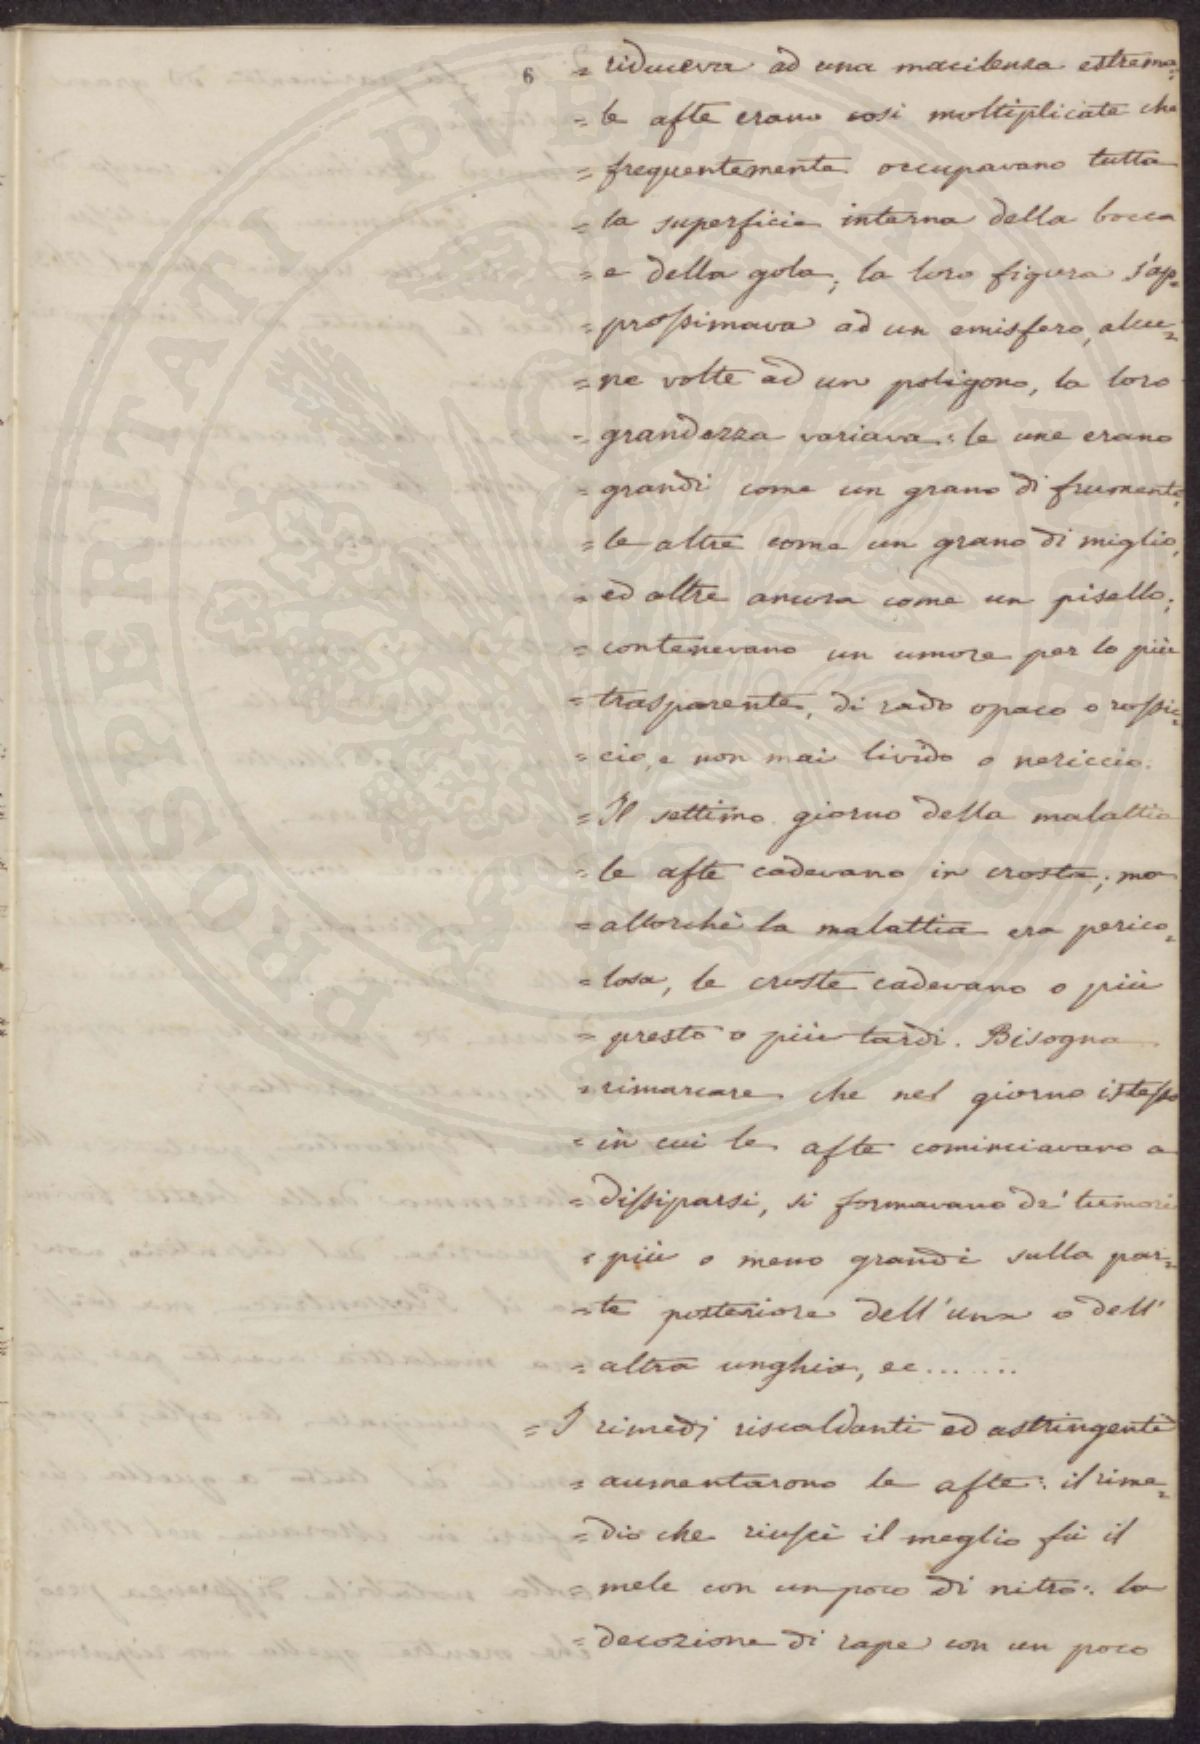 6
= riduceva ad una macilenza estrema:
= le afte erano così moltiplicate che
= frequentemente occupavano tutta
= la superficie interna della bocca
= e della gola; la loro figura s'ap=
= prossimava ad un emisfero, alcu=
= ne volte ad un poligono, la loro
= grandezza variava: le une erano
= grandi come un grano di frumento,
= le altre come un grano di miglio,
= ed altre ancora come un pisello;
= contenevano un umore per lo più
= trasparente, di rado opaco o rossic=
= cio, e non mai livido o nericcio.
= Il settimo giorno della malattia
= le afte cadevano in crosta; ma
= allorchè la malattia era perico=
= losa, le croste cadevano o più
= presto o più tardi. Bisogna
= rimarcare che nel giorno istesso
= in cui le afte cominciavano a
= dissiparsi, si formavano de' tumori
= più o meno grandi sulla par=
= te posteriore dell'una o dell'
= altra unghia, ec.......
= I rimedj riscaldanti ed astringenti
= aumentarono le afte: il rime=
= dio che riuscì il meglio fù il
= mele con un poco di nitro: la
= decozione di rape con un poco
PROSPERITATI PVBLICAE